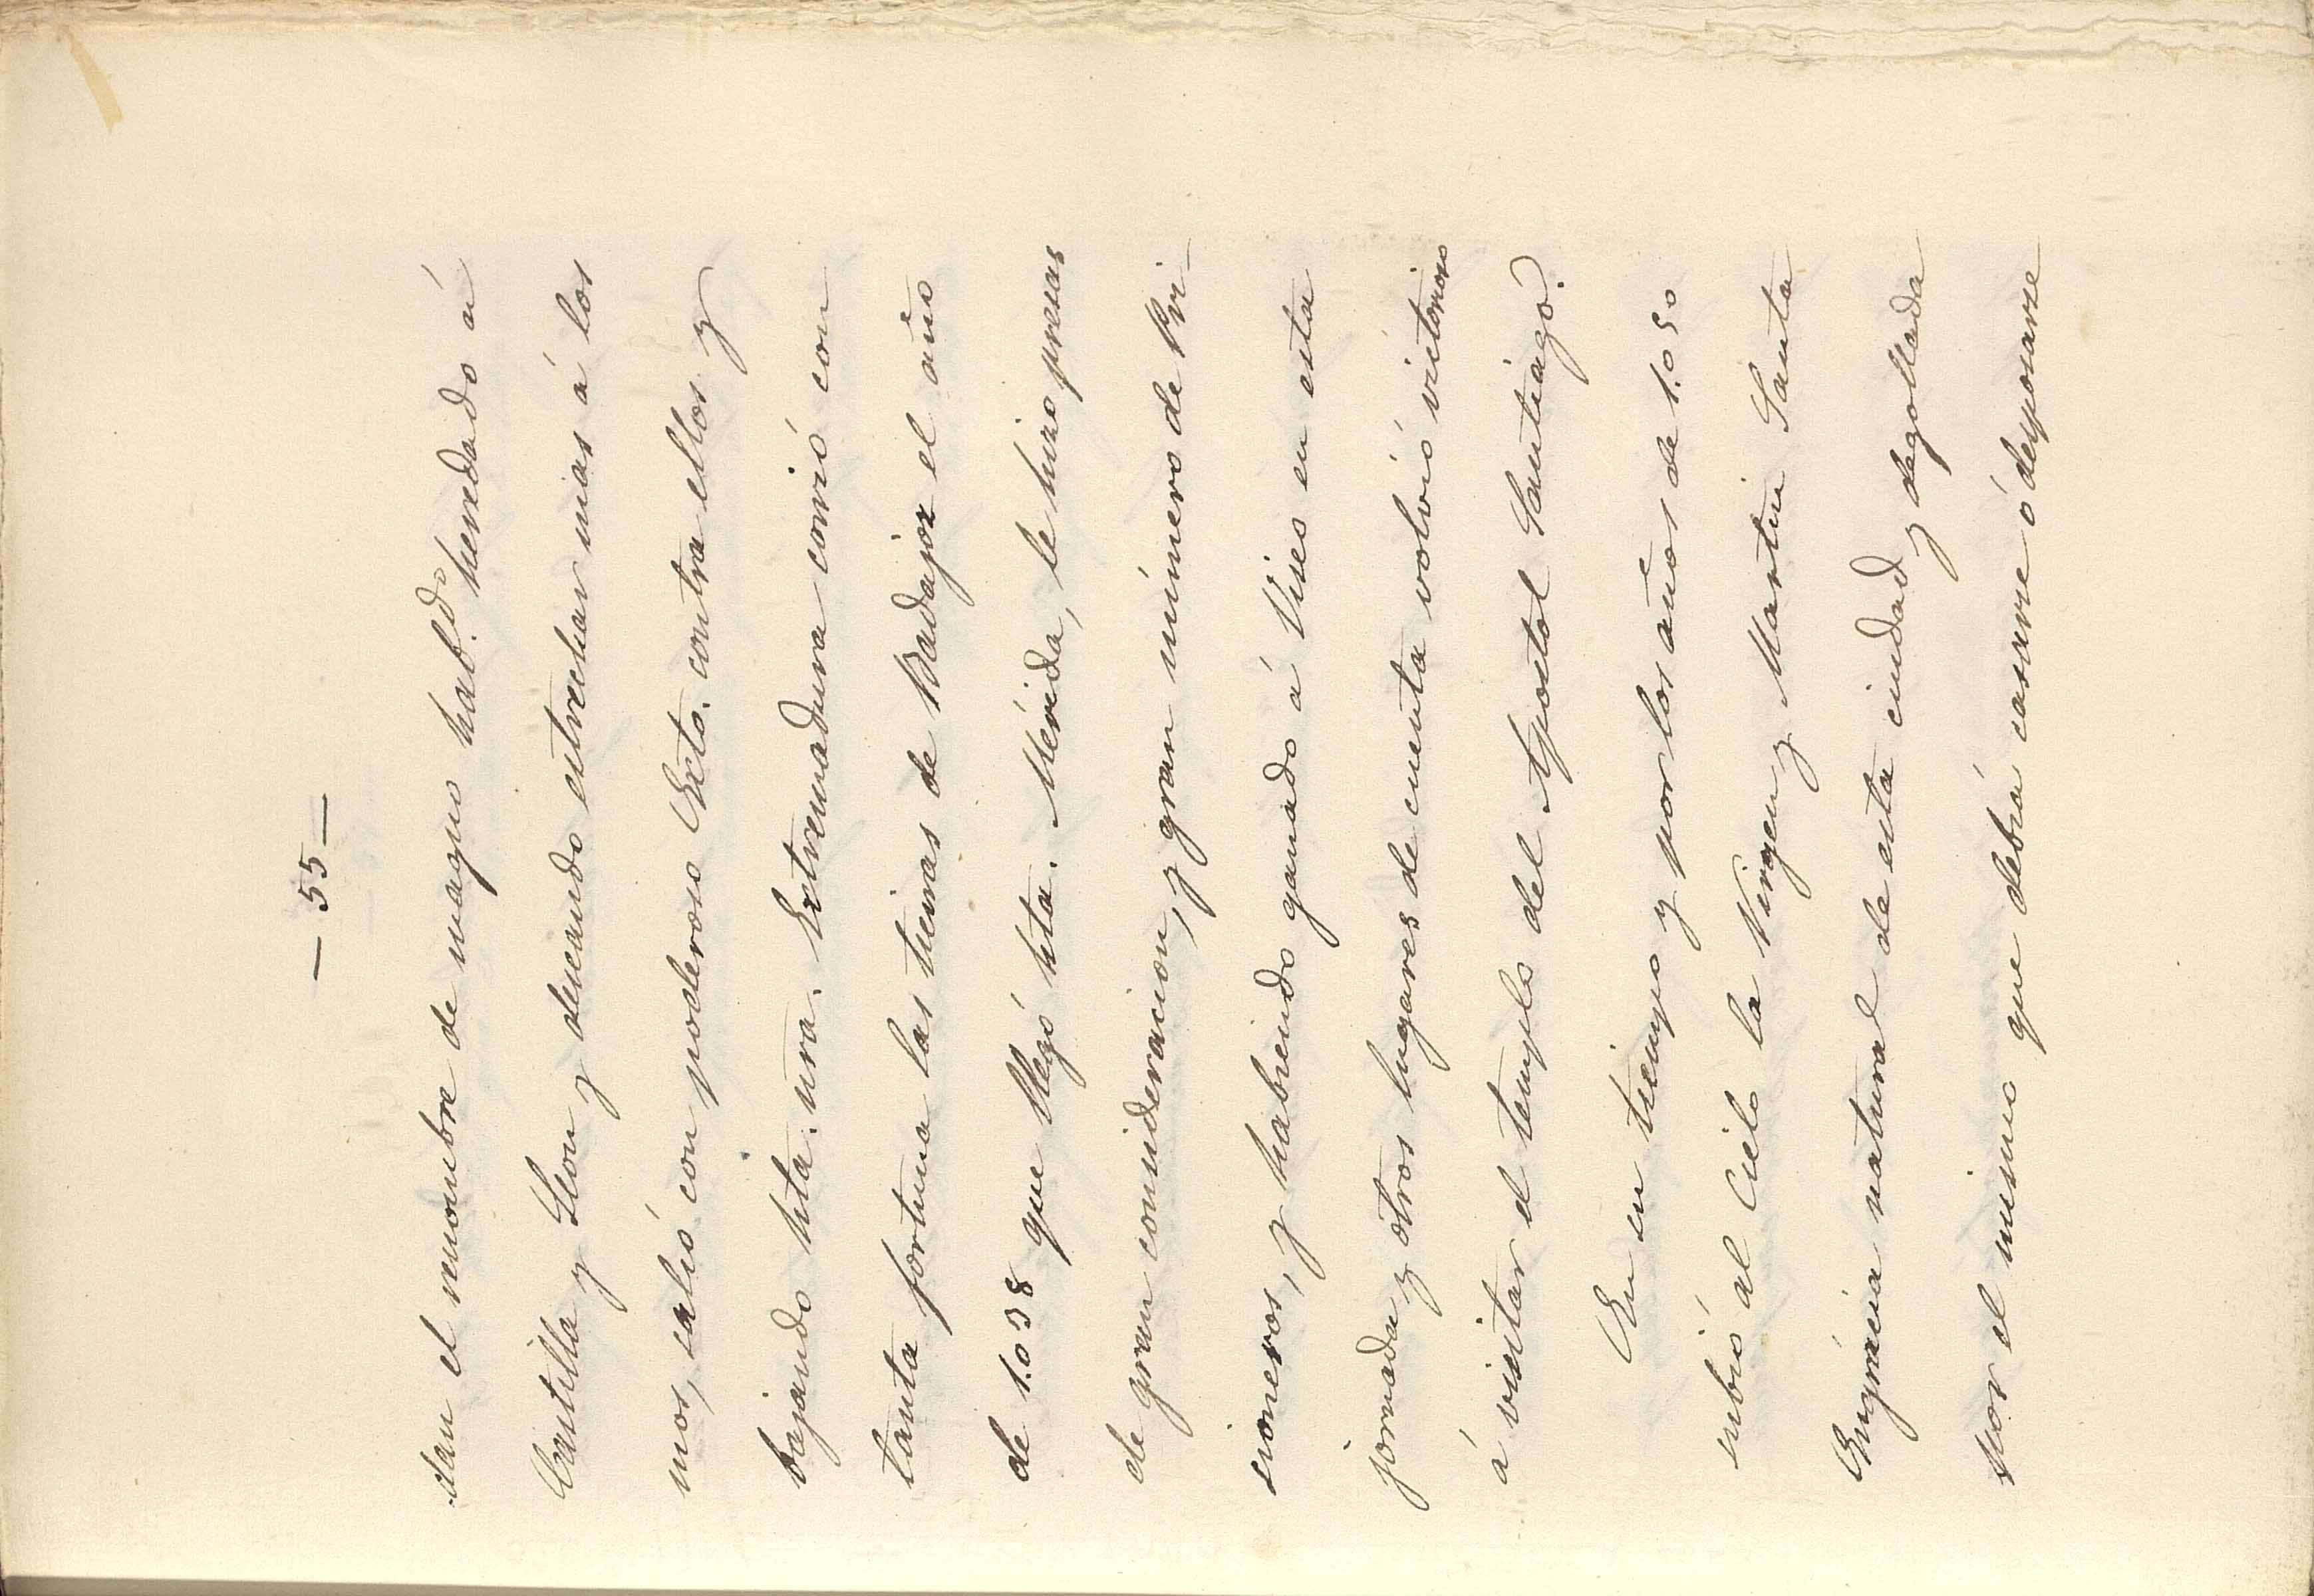 — 55 —
dan el renombre de magno hab.do heredado á
Castilla y Leon y deseando estrechar mas á los
mos, salió con poderoso Exto. contra ellos y
bajando hta. nra. Extremadura corrió con
tanta fortuna las tierras de Badajoz el año
de 1.038 que llegó hta. Mérida, le hizo presas
de gran consideracion, y gran número de Pri-
sioneros, y habiendo ganado á Viseo en esta
jornada y otros lugares de cuenta volvió victorioso
á visitar el templo del Apostol Santiago.
En su tiempo y por los años de 1.050
subió al Cielo la Virgen y Martir Santa
Eugracia natural de esta ciudad y degollada
por el mismo que debia casarse ó desposarse